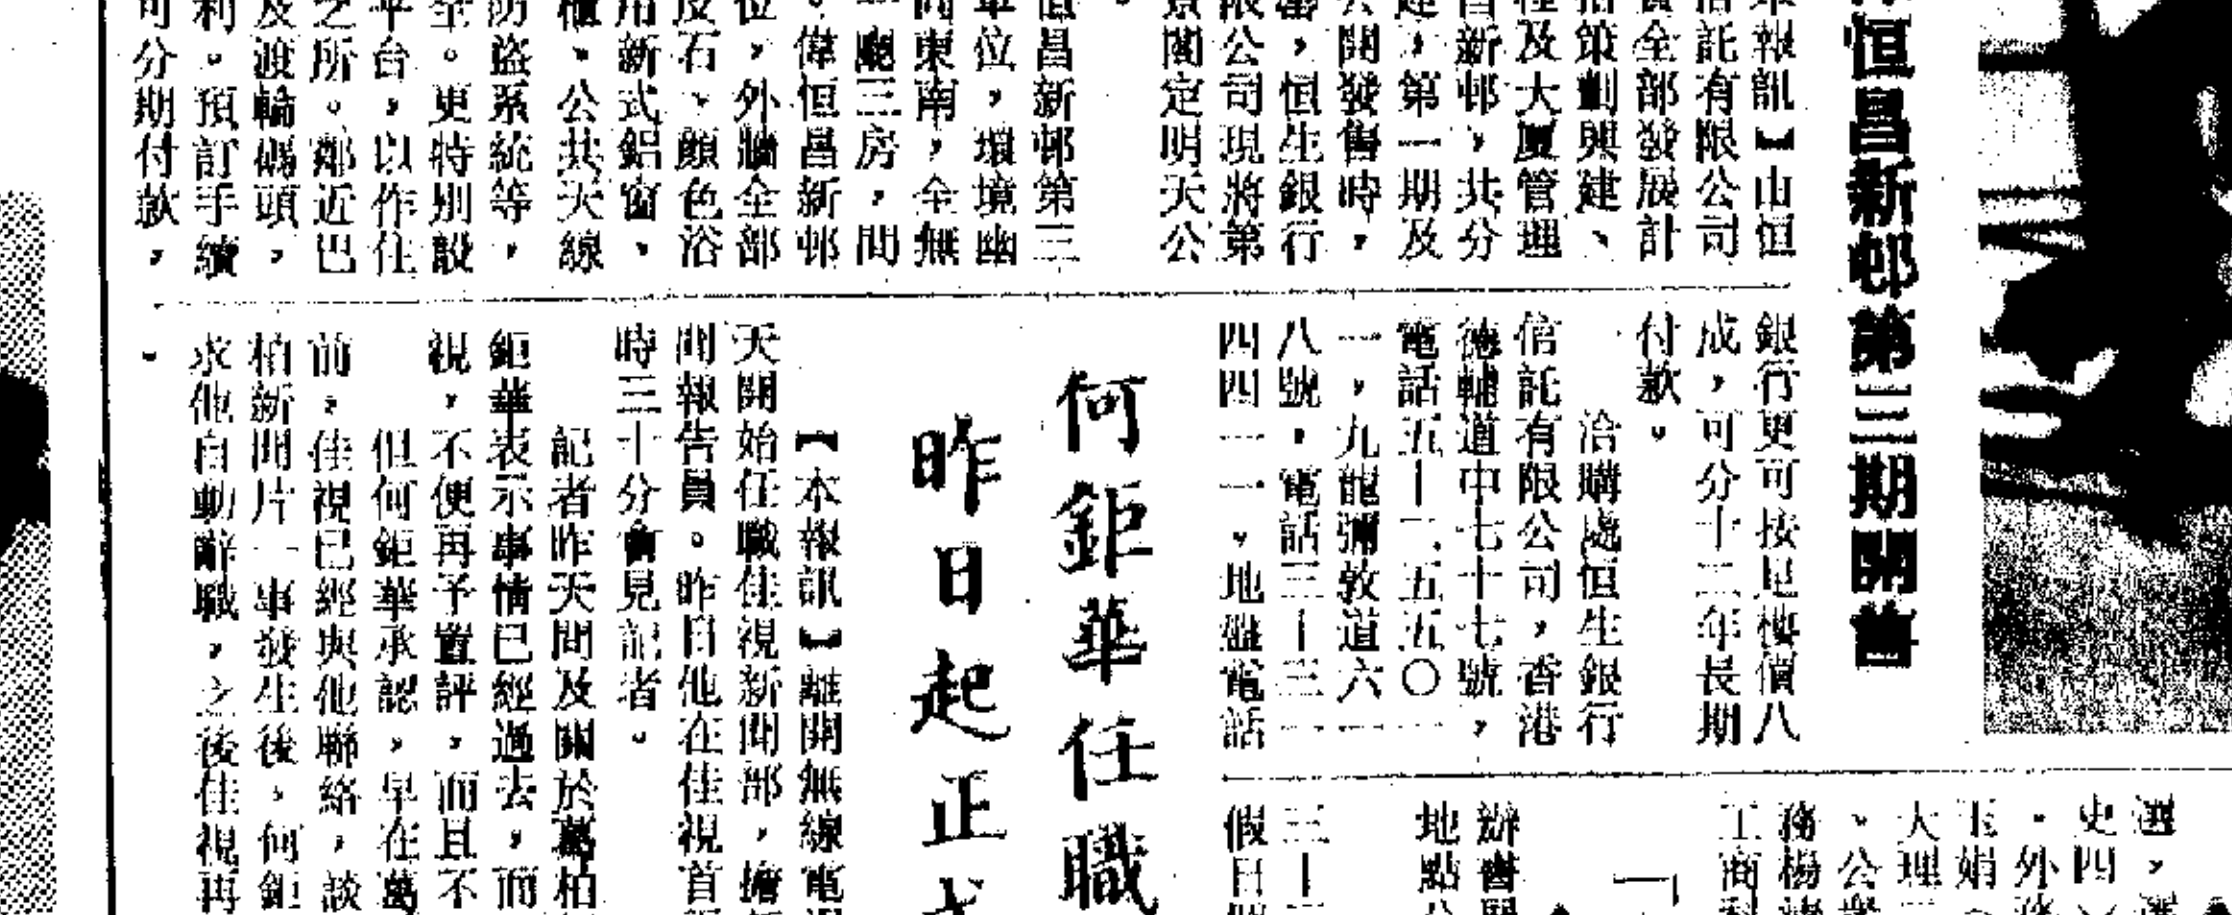 恒昌新邨第三期開售
報訊】山恒
託有限公司
全部發展計
策劃興建、
程及大厦管理
新邨，共分
，第一期及
公開發售時，
，恒生銀行
限公司現將第
景閣定明天公
恒昌新邨第三
單位，環境幽
向東南，全無
一廳三房，間
。偉恒昌新邨
位，外牆全部
石、顏色浴
用新式鋁窗、
櫃、公共天線
防盜系統等，
。更特別設
平台，以作住
之所。鄰近巴
及渡輪碼頭，
利。預訂手續
可分期付款，
銀行更可按足樓價八
成，可分十二年長期
付款。
洽購處恒生銀行
信託有限公司，香港
德輔道中七十七號，
電話五—二五五〇一
一，九龍彌敦道六一
八號，電話三—三一
四四一一。地盤電話
三—
假日
何鉅華任職
昨日起正
【本報訊】離開無線電
天開始任職佳視新聞部，擔
聞報告員。昨日他在佳視首
時三十分會見記者。
記者昨天問及關於萬柏
鉅華表示事情已經過去，而
視，不便再予置評，而且不
但何鉅華承認，早在萬
前，佳視已經與他聯絡，談
柏新聞片一事發生後，何鉅
求他自動辭職，之後佳視再
。
選，
史四
。外
玉娟
大理
、公
務楊
工商
辦
地點